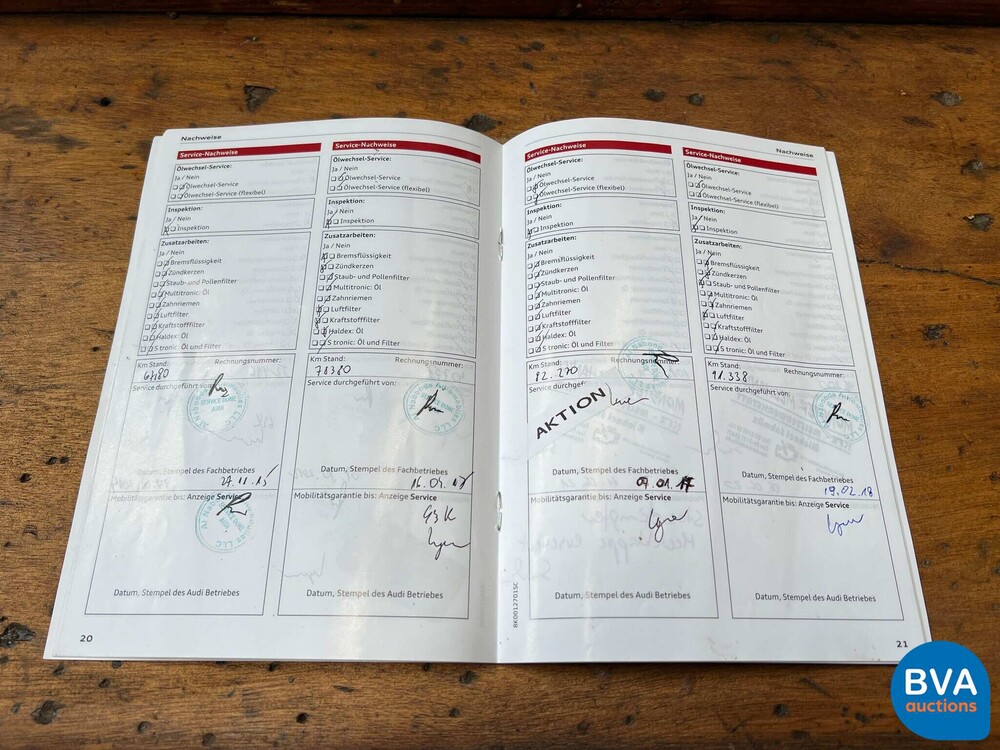 Nachweise
Service-Nachweise
Ölwechsel-Service:
Ja / Nein
Ölwechsel-Service
Ölwechsel-Service (flexibel)
Inspektion:
Ja / Nein
Inspektion
Zusatzarbeiten:
Ja / Nein
Bremsflüssigkeit
Zündkerzen
Staub- und Pollenfilter
Multitronic: Öl
Zahnriemen
Luftfilter
Kraftstofffilter
Haldex: Öl
S tronic: Öl und Filter
Km Stand:
Rechnungsnummer:
Service durchgeführt von:
Datum, Stempel des Fachbetriebes
27.11.15
Mobilitätsgarantie bis: Anzeige Service
Datum, Stempel des Audi Betriebes
20
Service-Nachweise
Ölwechsel-Service:
Ja / Nein
Ölwechsel-Service
Ölwechsel-Service (flexibel)
Inspektion:
Ja / Nein
Inspektion
Zusatzarbeiten:
Ja / Nein
Bremsflüssigkeit
Zündkerzen
Staub- und Pollenfilter
Multitronic: Öl
Zahnriemen
Luftfilter
Kraftstofffilter
Haldex: Öl
S tronic: Öl und Filter
Km Stand:
Rechnungsnummer:
Service durchgeführt von:
Datum, Stempel des Fachbetriebes
Mobilitätsgarantie bis: Anzeige Service
Datum, Stempel des Audi Betriebes
Nachweise
Service-Nachweise
Ölwechsel-Service:
Ja / Nein
Ölwechsel-Service
Ölwechsel-Service (flexibel)
Inspektion:
Ja / Nein
Inspektion
Zusatzarbeiten:
Ja / Nein
Bremsflüssigkeit
Zündkerzen
Staub- und Pollenfilter
Multitronic: Öl
Zahnriemen
Luftfilter
Kraftstofffilter
Haldex: Öl
S tronic: Öl und Filter
Km Stand:
Rechnungsnummer:
Service durchgef
AKTION
Datum, Stempel des Fachbetriebes
09.01.17
Mobilitätsgarantie bis: Anzeige Service
Datum, Stempel des Audi Betriebes
8K0012701SC
Service-Nachweise
Ölwechsel-Service:
Ja / Nein
Ölwechsel-Service
Ölwechsel-Service (flexibel)
Inspektion:
Ja / Nein
Inspektion
Zusatzarbeiten:
Ja / Nein
Bremsflüssigkeit
Zündkerzen
Staub- und Pollenfilter
Multitronic: Öl
Zahnriemen
Luftfilter
Kraftstofffilter
Haldex: Öl
S tronic: Öl und Filter
Km Stand:
Rechnungsnummer:
Service durchgeführt von:
Datum, Stempel des Fachbetriebes
19.02.18
Mobilitätsgarantie bis: Anzeige Service
Datum, Stempel des Audi Betriebes
21
BVA
auctions